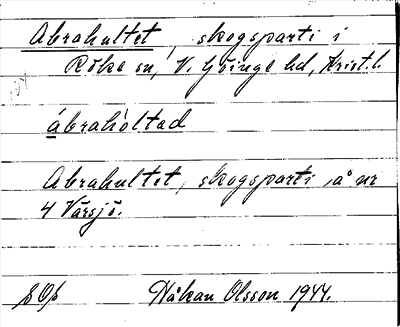 Abrahultet, skogsparti i
Röke sn, V. Göinge hd, Krist. l.
ábrahòltad
Abrahultet, skogsparti å nr
4 Varsjö.
Håkan Olsson 1944.